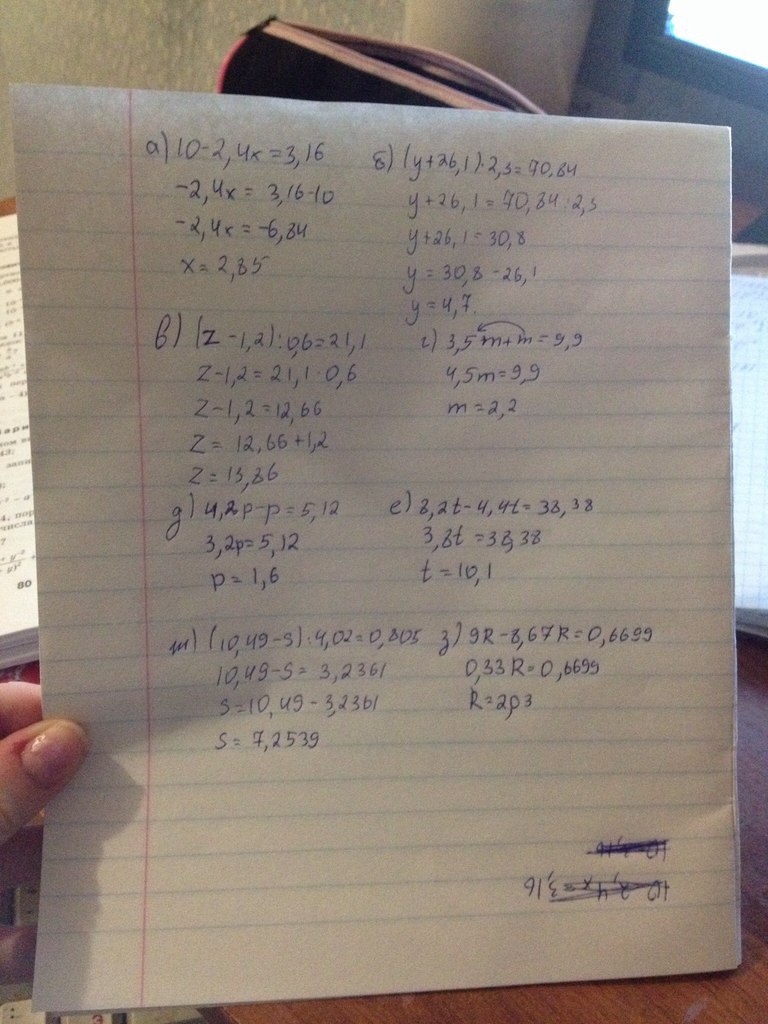 а) 10-2,4x=3,16
-2,4x= 3,16-10
-2,4x=-6,84
x=2,85
б) (y+26,1)·2,3=70,84
y+26,1=70,84:2,3
y+26,1=30,8
y=30,8-26,1
y=4,7.
в) (z-1,2):0,6=21,1
z-1,2=21,1·0,6
z-1,2=12,66
z=12,66+1,2
z=13,86
г) 3,5m+m=9,9
4,5m=9,9
m=2,2
д) 4,2p-p=5,12
3,2p=5,12
p=1,6
е) 8,2t-4,4t=38,38
3,8t=38,38
t=10,1
ж) (10,49-s):4,02=0,805
10,49-s=3,2361
s=10,49-3,2361
s=7,2539
з) 9R-8,67R=0,6699
0,33R=0,6699
R=2,03
10-2,4x=3,16
80